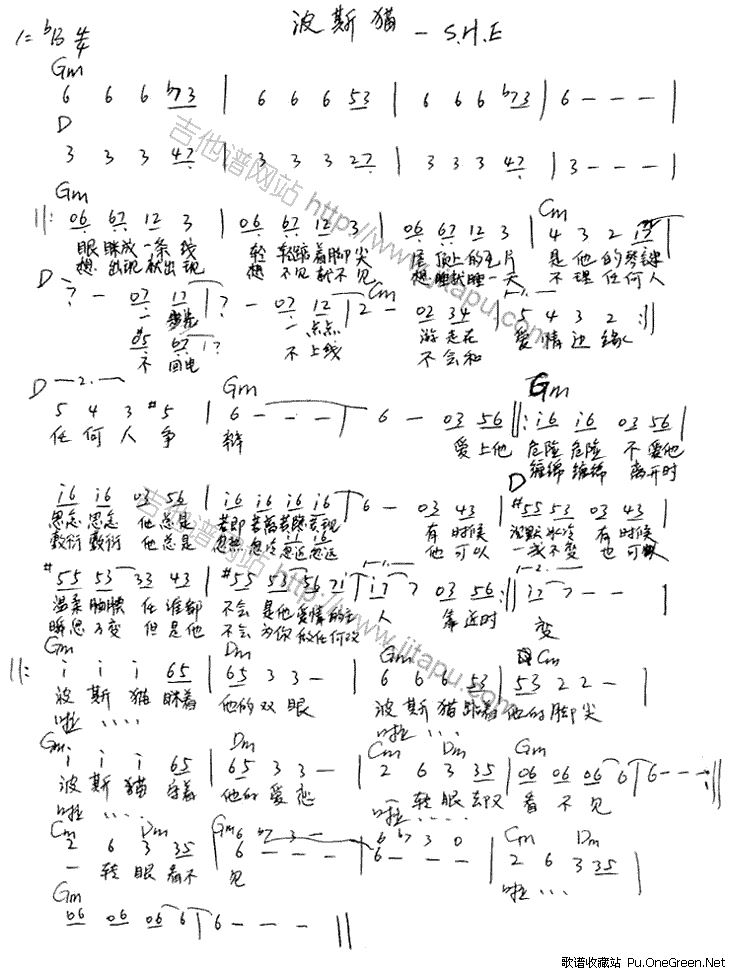 波斯猫 - S.H.E
1=ᵇB 4/4
Gm
6 6 6 ᵇ7 3 | 6 6 6 5 3 | 6 6 6 ᵇ7 3 | 6 - - - |
D
3 3 3 4 7 | 3 3 3 2 7 | 3 3 3 4 7 | 3 - - - |
Gm Cm
||: 06 67 12 3 | 06 67 12 3 | 06 67 12 3 | 4 3 2
眼眯成一条线 轻轻踮着脚尖 屋顶上的瓦片 是他的琴键
想出现就出现 想不见就不见 想睡就睡一天 不理任何人
D Cm 1.
- 07 12 - 07 12 | 2 - 02 34 | 5 4 3 2 :||
一点点 游走在 爱情边缘
#5 67
不回电 不上线 不会和
D 2. Gm Gm
5 4 3 #5 | 6 - - - | 6 - 03 56 ||: i6 i6 03 56 |
任何人争 辩 爱上他 危险危险 不爱他
缠绵缠绵 离开时
D
i6 i6 03 56 | i6 i6 i6 i6 | 6 - 03 43 | #55 53 03 43 |
思念思念 他总是 若即若离若隐若现 有时候 沉默冰冷 有时候
敷衍敷衍 他总是 忽热忽冷忽近忽远 他可以 一成不变 也可以
1. 2.
#55 53 33 43 | #55 53 56 7i | i7 7 03 56 :|| i7 7 - - |
温柔腼腆 任谁都 不会是他爱情的主 人 靠近时 变
瞬息万变 但是他 不会为你做任何改
Gm Dm Gm Cm
||: i i i 65 | 65 3 3 - | 6 6 6 53 | 53 2 2 - |
波斯猫眯着 他的双眼 波斯猫踮着 他的脚尖
啦 .... 啦 ....
Gm Dm Cm Dm Gm
i i i 65 | 65 3 3 - | 2 6 3 35 | 06 06 06 6 | 6 - - - :||
波斯猫守着 他的爱恋 一转眼却又 看不见
啦 .... 啦 ....
Cm Dm Gm Cm Dm
2 6 3 35 | 6 ᵇ7 3 - | 6 ᵇ7 3 0 | 2 6 3 35 |
6 - - - 6 - - -
一转眼看不 见 啦 ...
Gm
06 06 06 6 | 6 - - - ||
吉他谱网站 http://www.jitapu.com
吉他谱网站 http://www.jitapu.com
歌谱收藏站 Pu.OneGreen.Net